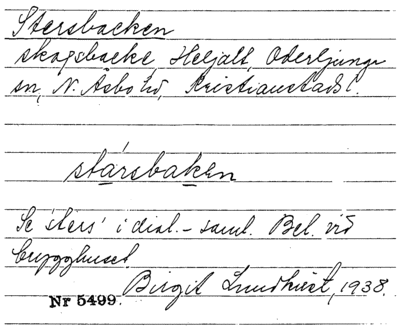 Stersbacken
skogsbacke, Heljalt, Oderljunga
sn, N. Åsbo hd, Kristianstads l.
stársbaken
Se 'sters' i dial.- saml. Bel. vid
brygghuset.
Birgit Lundkvist, 1938.
Nr 5499.